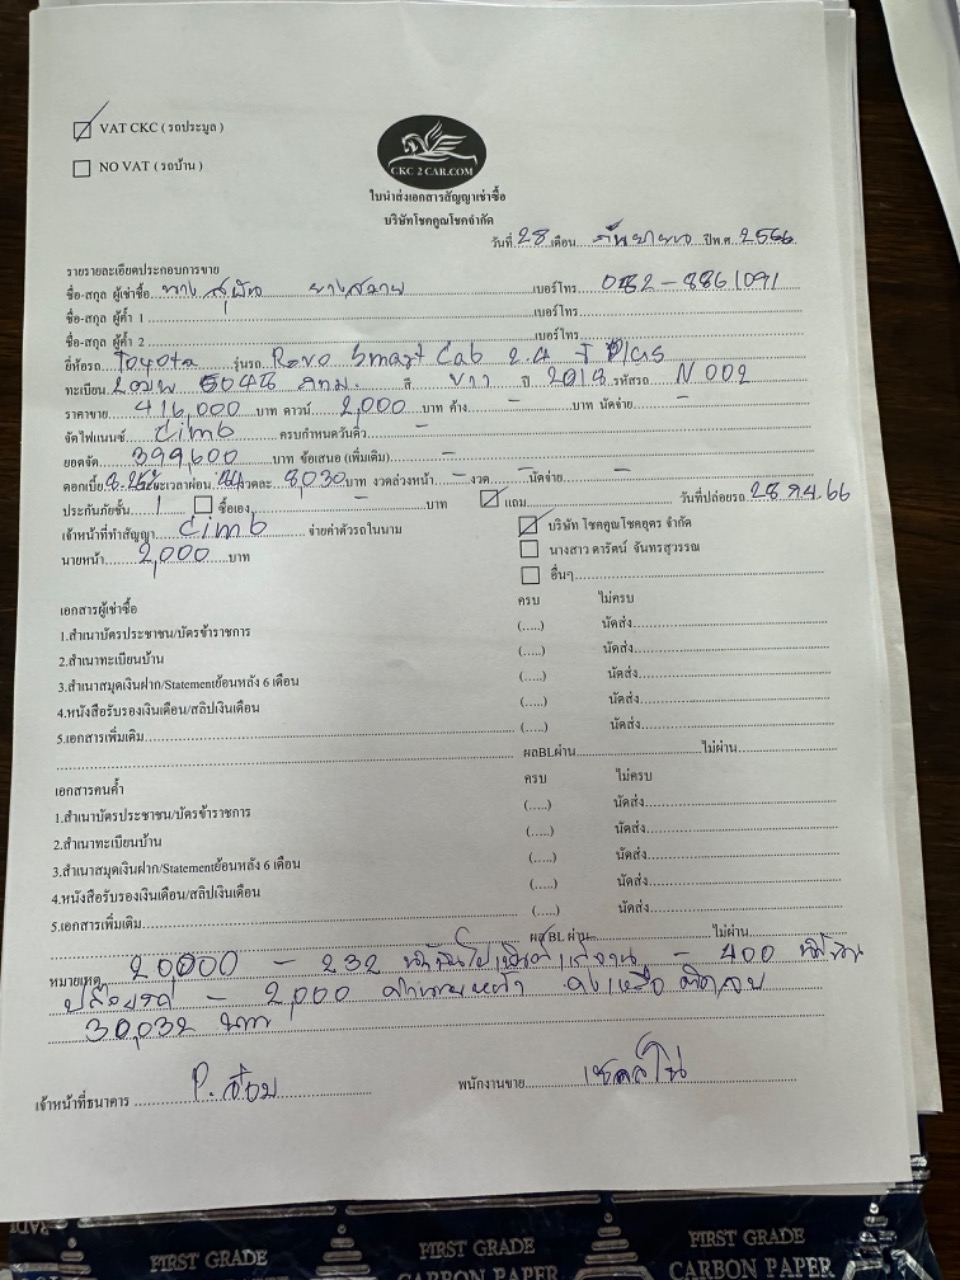 VAT CKC ( รถประมูล )
NO VAT ( รถบ้าน )
CKC 2 CAR.COM
ใบนำส่งเอกสารสัญญาเช่าซื้อ
บริษัทโชคคูณโชคจำกัด
วันที่ 28 เดือน กันยายน ปีพ.ศ. 2566
รายรายละเอียดประกอบการขาย
ชื่อ-สกุล ผู้เช่าซื้อ นาง เบอร์โทร. 082-8861091
ชื่อ-สกุล ผู้ค้ำ 1 เบอร์โทร
ชื่อ-สกุล ผู้ค้ำ 2 เบอร์โทร
ยี่ห้อรถ Toyota รุ่นรถ Revo Smart Cab 2.4 J Plus
ทะเบียน 5048 กทม. สี ขาว ปี 2018 รหัสรถ N 002
ราคาขาย 416,000 บาท ดาวน์ 2,000 บาท ค้าง - บาท นัดจ่าย -
จัดไฟแนนซ์ cimb ครบกำหนดวันคิว -
ยอดจัด 399,600 บาท ข้อเสนอ (เพิ่มเติม) -
ดอกเบี้ย ระยะเวลาผ่อน 84 งวดละ 8,030 บาท งวดล่วงหน้า - งวด - นัดจ่าย -
ประกันภัยชั้น 1 ซื้อเอง - บาท แถม วันที่ปล่อยรถ 28 ก.ย. 66
เจ้าหน้าที่ทำสัญญา cimb จ่ายค่าตัวรถในนาม บริษัท โชคคูณโชคอุดร จำกัด
นายหน้า 2,000 บาท นางสาว ดารัตน์ จันทรสุวรรณ
อื่นๆ
เอกสารผู้เช่าซื้อ ครบ ไม่ครบ
1.สำเนาบัตรประชาชน/บัตรข้าราชการ (.....) นัดส่ง
2.สำเนาทะเบียนบ้าน (.....) นัดส่ง
3.สำเนาสมุดเงินฝาก/Statementย้อนหลัง 6 เดือน (.....) นัดส่ง
4.หนังสือรับรองเงินเดือน/สลิปเงินเดือน (.....) นัดส่ง
5.เอกสารเพิ่มเติม (.....) นัดส่ง
ผลBLผ่าน ไม่ผ่าน
เอกสารคนค้ำ ครบ ไม่ครบ
1.สำเนาบัตรประชาชน/บัตรข้าราชการ (.....) นัดส่ง
2.สำเนาทะเบียนบ้าน (.....) นัดส่ง
3.สำเนาสมุดเงินฝาก/Statementย้อนหลัง 6 เดือน (.....) นัดส่ง
4.หนังสือรับรองเงินเดือน/สลิปเงินเดือน (.....) นัดส่ง
5.เอกสารเพิ่มเติม (.....) นัดส่ง
ผลBL ผ่าน ไม่ผ่าน
หมายเหตุ 20,000 - 232 - 400
ปล่อยรถ - 2,000 ค่านายหน้า คงเหลือ
30,032 บาท
เจ้าหน้าที่ธนาคาร พนักงานขาย
FIRST GRADE FIRST GRADE FIRST GRADE
CARBON PAPER CARBON PAPER CARBON PAPER